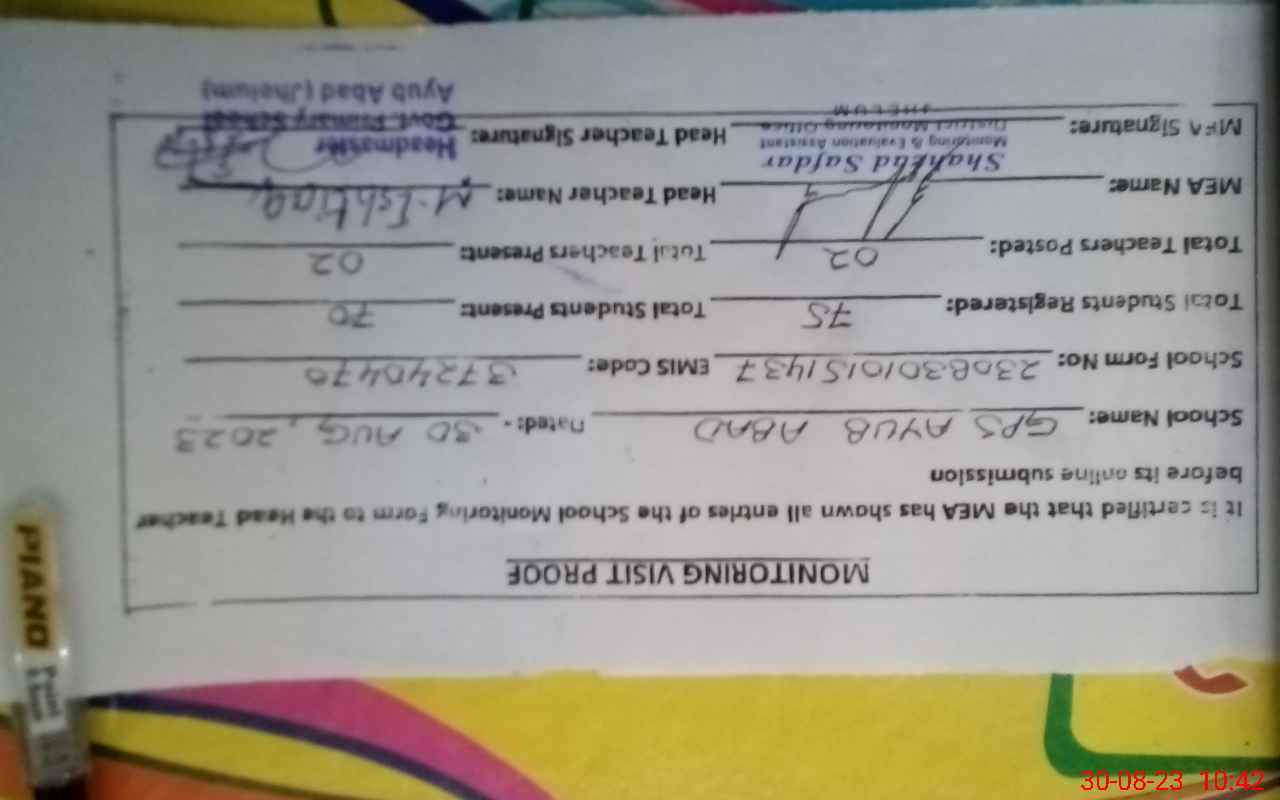 MONITORING VISIT PROOF
It is certified that the MEA has shown all entries of the School Monitoring Form to the Head Teacher
before its online submission
School Name: GPS AYUB ABAD Dated:- 30 AUG, 2023
School Form No: 23083010151437 EMIS Code: 37240470
Total Students Registered: 75 Total Students Present: 70
Total Teachers Posted: 02 Total Teachers Present: 02
MEA Name: Head Teacher Name: M. Ishtiaq
Shahzad Safdar
Monitoring & Evaluation Assistant
District Monitoring Office
JHELUM
MEA Signature: Head Teacher Signature:
Headmaster
Govt. Primary School
Ayub Abad (Jhelum)
PIANO
30-08-23 10:42